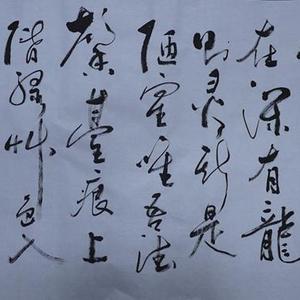 在深有龍
則灵斯是
陋室唯吾德
馨苔痕上
階緑艸色入